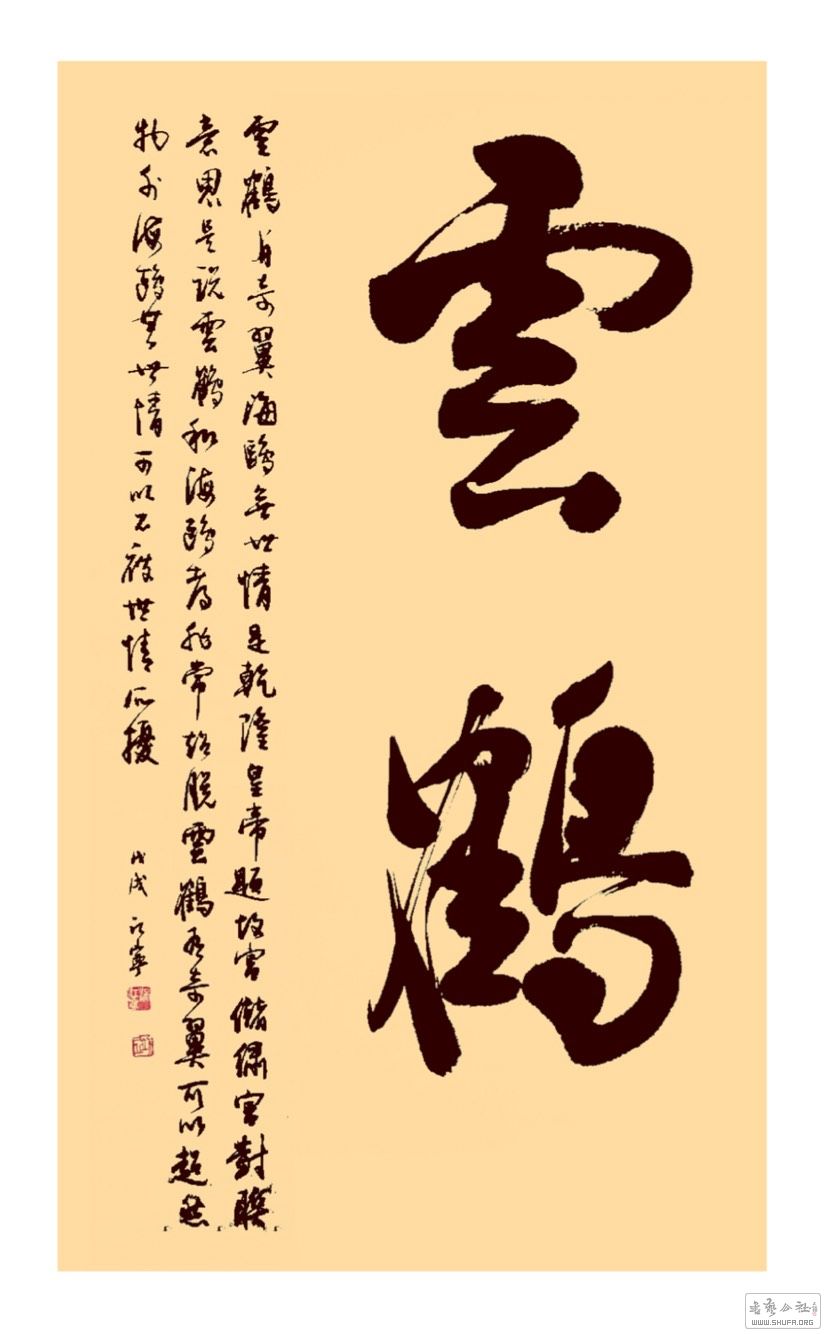 雲鶴
雲鶴有奇翼海鷗無世情是乾隆皇帝題故宮儲繡宮對聯
意思是說雲鶴和海鷗都非常超脫雲鶴有奇翼可以超然
物外海鷗無世情可以不被世情所擾
戊戌 江寧
書藝公社
WWW.SHUFA.ORG